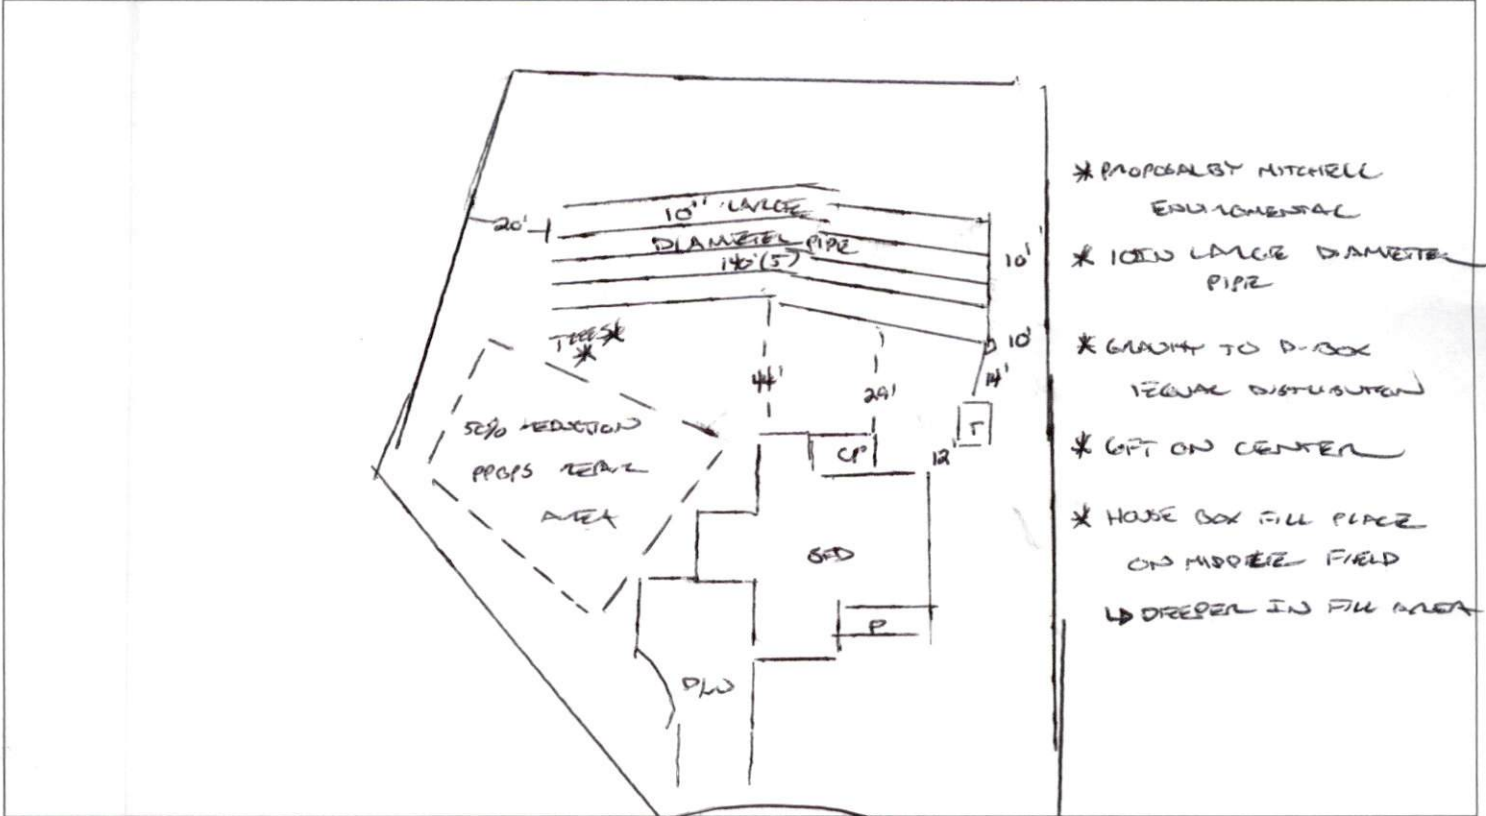 10" LARGE
DIAMETER PIPE
140'(5)
20'
10'
10'
14'
TREES
44'
29'
T
CP
12'
50% REDUCTION
PPBPS REPAIR
AREA
P
D/W
* PROPOSAL BY MITCHELL
ENVIROMENTAL
* 10IN LARGE DIAMETER
PIPE
* GRAVITY TO D-BOX
EQUAL DISTRIBUTION
* 6FT ON CENTER
* HOUSE BOX FILL PLACE
ON MIDDLE FIELD
↳ DEEPER IN FILL AREA